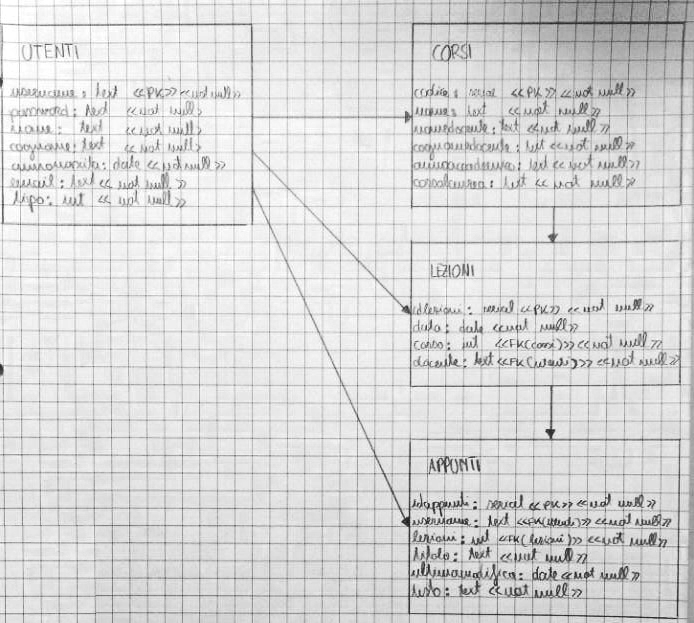 UTENTI
username: text <<PK>> <<not null>>
password: text <<not null>>
nome: text <<not null>>
cognome: text <<not null>>
annonascita: date <<not null>>
email: text <<not null>>
tipo: int <<not null>>
CORSI
codice: serial <<PK>> <<not null>>
nome: text <<not null>>
nomedocente: text <<not null>>
cognomedocente: text <<not null>>
annoaccademico: text <<not null>>
corsolaurea: text <<not null>>
LEZIONI
idlezioni: serial <<PK>> <<not null>>
data: date <<not null>>
corso: int <<FK(corsi)>> <<not null>>
docente: text <<FK(utenti)>> <<not null>>
APPUNTI
idappunti: serial <<PK>> <<not null>>
username: text <<FK(utenti)>> <<not null>>
lezioni: int <<FK(lezioni)>> <<not null>>
titolo: text <<not null>>
ultimamodifica: date <<not null>>
testo: text <<not null>>